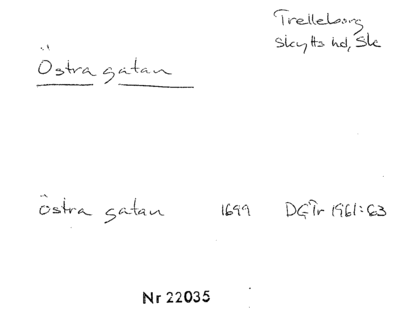 Trelleborg
Skytts hd, Sk
Östra gatan
östra gatan 1699 DGTr 1961:63
Nr 22035